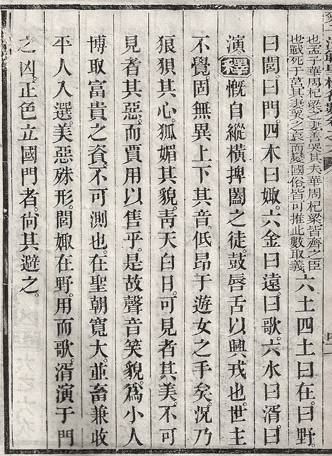 也孟子華周杞梁之妻善哭其夫華周杞梁皆齊之臣
也戰死于莒其妻哭之哀而變國俗皆可推此數取義
六土四土曰在曰野
曰閭曰門四木曰娵六金曰遠曰歌六水曰湑曰
演釋慨自縱橫捭闔之徒鼓唇舌以興戎也世主
不覺固無異上下其音低昂于遊女之手矣況乃
狼狽其心狐媚其貌青天白日可見者其美不可
見者其惡而賈用以售乎是故聲音笑貌爲小人
博取富貴之資不可測也在聖朝寬大並畜兼收
平人入選美惡殊形閭娵在野用而歌湑演于門
之凶正色立國門者尙其避之